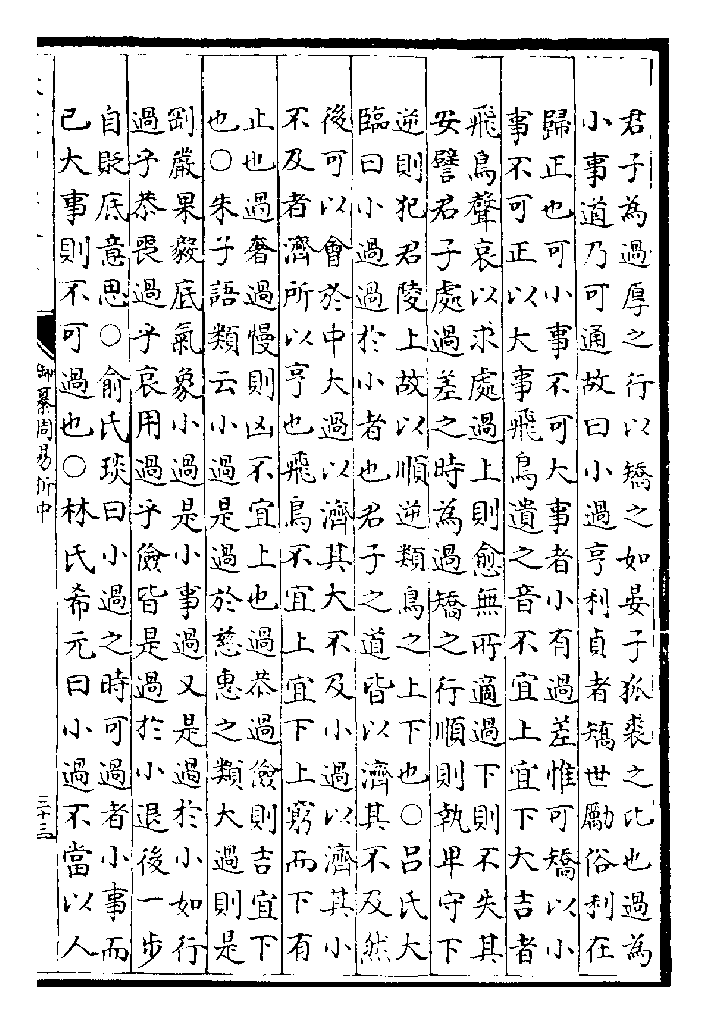 君子為過厚之行以矯之如晏子狐裘之比也過為
小事道乃可通故曰小過亨利貞者矯世勵俗利在
歸正也可小事不可大事者小有過差惟可矯以小
事不可正以大事飛鳥遺之音不宜上宜下大吉者
飛鳥聲哀以求處過上則愈無所適過下則不失其
安譬君子處過差之時為過矯之行順則執卑守下
逆則犯君陵上故以順逆類鳥之上下也○呂氏大
臨曰小過過於小者也君子之道皆以濟其不及然
後可以會於中大過以濟其大不及小過以濟其小
不及者濟所以亨也飛鳥不宜上宜下上窮而下有
止也過奢過慢則凶不宜上也過恭過儉則吉宜下
也○朱子語類云小過是過於慈惠之類大過則是
剛嚴果毅底氣象小過是小事過又是過於小如行
過乎恭喪過乎哀用過乎儉皆是過於小退後一步
自貶底意思○俞氏琰曰小過之時可過者小事而
已大事則不可過也○林氏希元曰小過不當以人
御纂周易折中
三十三